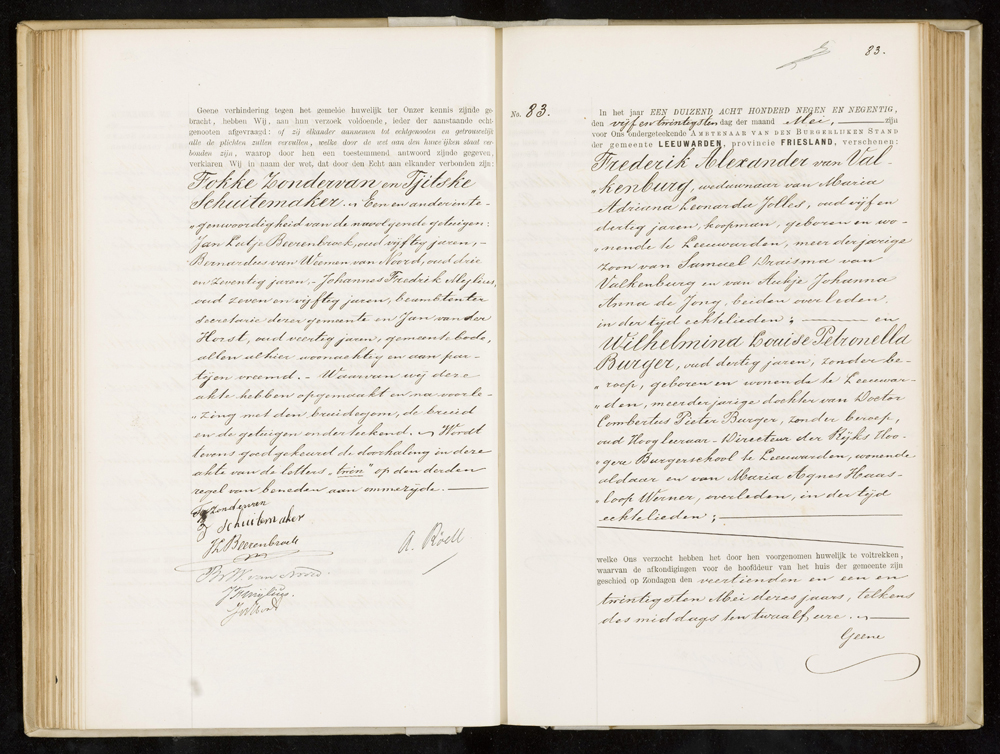 Geene verhindering tegen het gemelde huwelijk ter Onzer kennis zijnde ge-
bracht, hebben Wij, aan hun verzoek voldoende, ieder der aanstaande echt-
genooten afgevraagd: of zij elkander aannemen tot echtgenooten en getrouwelijk
alle de plichten zullen vervullen, welke door de wet aan den huwelijken staat ver-
bonden zijn, waarop door hen een toestemmend antwoord zijnde gegeven,
verklaren Wij in naam der wet, dat door den Echt aan elkander verbonden zijn:
Fokke Zondervan en Tjitske
Schuitemaker. Een en ander in te-
genwoordigheid van de navolgende getuigen:
Jan Beerenbrock, oud vijftig jaren,
Bernardus van Weemen van Noord, oud drie
en zeventig jaren, Johannes Fredrik
oud zeven en vijftig jaren, beambten ter
secretarie dezer gemeente en Jan van der
Horst, oud veertig jaren, gemeente bode,
allen alhier woonachtig en aan par-
tijen vreemd. - Waarvan wij deze
akte hebben opgemaakt en na voorle-
zing met den bruidegom, de bruid
en de getuigen onderteekend. Wordt
tevens goedgekeurd de doorhaling in deze
akte van de letters "twin" op den derden
regel van beneden aan ommezijde.
Zondervan
Schuitemaker
Beerenbrock
A. Röell
83.
No. 83.
In het jaar EEN DUIZEND ACHT HONDERD NEGEN EN NEGENTIG,
den vijf en twintigsten dag der maand Mei, zijn
voor Ons ondergeteekende AMBTENAAR VAN DEN BURGERLIJKEN STAND
der gemeente LEEUWARDEN, provincie FRIESLAND, verschenen:
Frederik Alexander van Val-
kenburg, weduwnaar van Maria
Adriana Leonarda Jolles, oud vijf en
dertig jaren, koopman, geboren en wo-
nende te Leeuwarden, meerderjarige
zoon van Samuel Draisma van
Valkenburg en van Aukje Johanna
Anna de Jong, beiden overleden,
in der tijd echtelieden; en
Wilhelmina Louise Petronella
Burger, oud dertig jaren, zonder be-
roep, geboren en wonende te Leeuwar-
den, meerderjarige dochter van Doctor
Combertus Pieter Burger, zonder beroep,
oud Hoogleeraar - Directeur der Rijks Hoo-
gere Burgerschool te Leeuwarden, wonende
aldaar en van Maria Agnes Haas-
loop Werner, overleden, in der tijd
echtelieden;
welke Ons verzocht hebben het door hen voorgenomen huwelijk te voltrekken,
waarvan de afkondigingen voor de hoofddeur van het huis der gemeente zijn
geschied op Zondagen den veertienden en een en
twintigsten Mei dezes jaars, telkens
des middags ten twaalf ure.
Geene